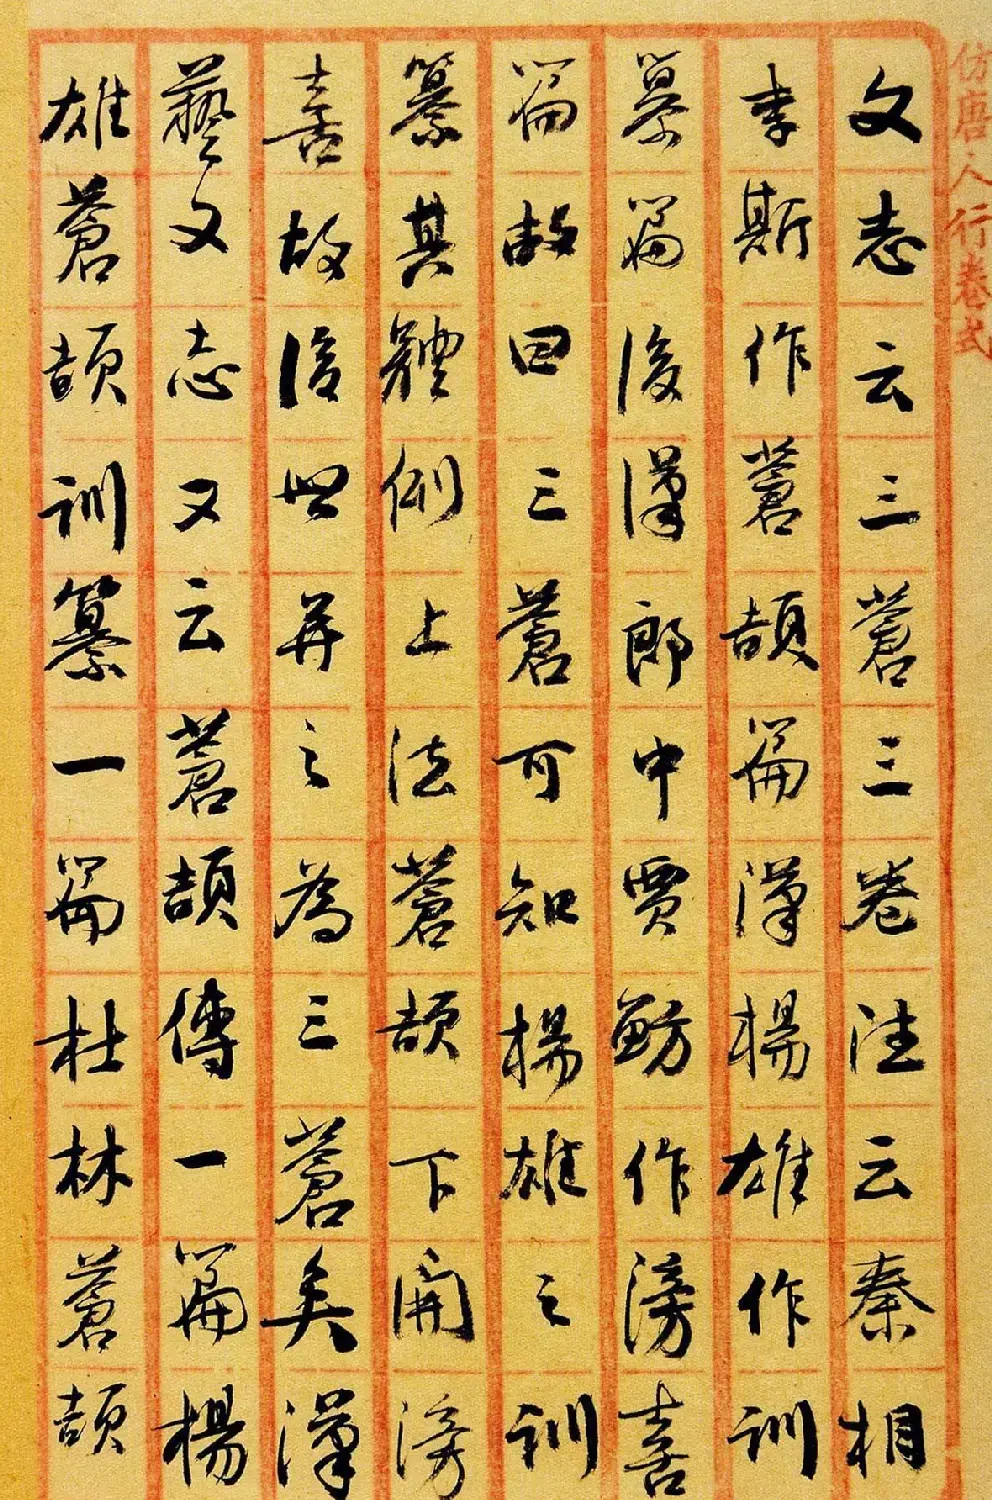 仿唐人行卷式
文志云三蒼三卷注云秦相
李斯作蒼頡篇漢楊雄作訓
纂篇後漢郎中賈魴作滂喜
篇故曰三蒼可知楊雄之訓
纂其體例上法蒼頡下開滂
喜故後世并之為三蒼矣漢
藝文志又云蒼頡傳一篇楊
雄蒼頡訓纂一篇杜林蒼頡